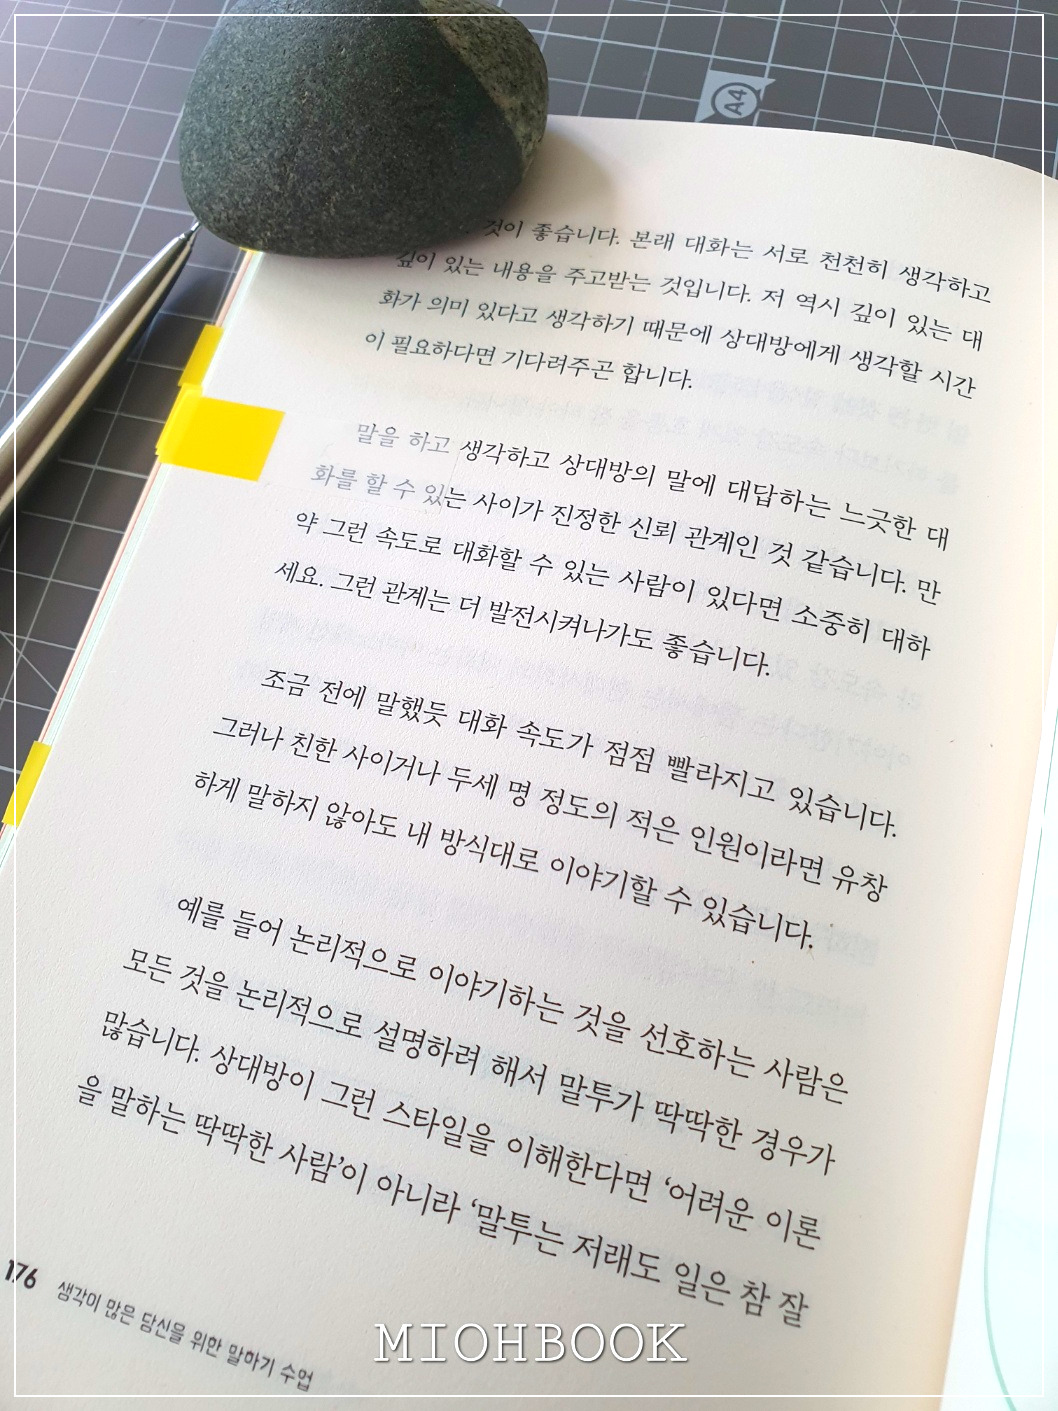 A4
것이 좋습니다. 본래 대화는 서로 천천히 생각하고
깊이 있는 내용을 주고받는 것입니다. 저 역시 깊이 있는 대
화가 의미 있다고 생각하기 때문에 상대방에게 생각할 시간
이 필요하다면 기다려주곤 합니다.
말을 하고 생각하고 상대방의 말에 대답하는 느긋한 대
화를 할 수 있는 사이가 진정한 신뢰 관계인 것 같습니다. 만
약 그런 속도로 대화할 수 있는 사람이 있다면 소중히 대하
세요. 그런 관계는 더 발전시켜나가도 좋습니다.
조금 전에 말했듯 대화 속도가 점점 빨라지고 있습니다.
그러나 친한 사이거나 두세 명 정도의 적은 인원이라면 유창
하게 말하지 않아도 내 방식대로 이야기할 수 있습니다.
예를 들어 논리적으로 이야기하는 것을 선호하는 사람은
모든 것을 논리적으로 설명하려 해서 말투가 딱딱한 경우가
많습니다. 상대방이 그런 스타일을 이해한다면 ‘어려운 이론
을 말하는 딱딱한 사람’이 아니라 ‘말투는 저래도 일은 참 잘
176 생각이 많은 당신을 위한 말하기 수업
MIOHBOOK